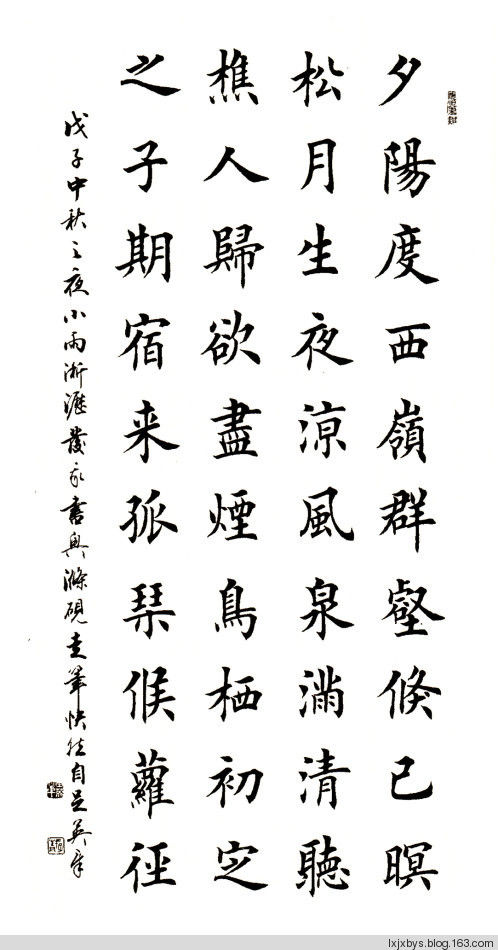 夕陽度西嶺群壑倏已暝
松月生夜涼風泉滿清聽
樵人歸欲盡煙鳥栖初定
之子期宿来孤琴候蘿徑
戊子中秋之夜小雨淅瀝發我書興滌硯走筆快然自足英章
lxjxbys.blog.163.com